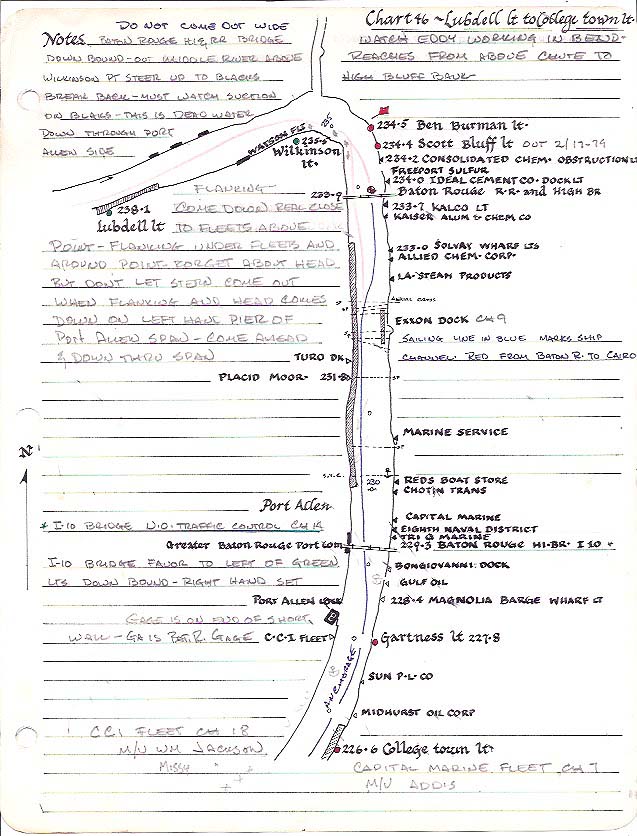 DO NOT COME OUT WIDE
Chart 46 ~ Lubdell lt to College town lt.
Notes BATON ROUGE HI & RR BRIDGE
DOWN BOUND - OUT MIDDLE RIVER ABOVE
WILKINSON PT STEER UP TO BLACKS
BREAK BACK - MUST WATCH SUCTION
ON BLAKS - THIS IS DEAD WATER
DOWN THROUGH PORT
ALLEN SIDE
WATCH EDDY WORKING IN BEND -
REACHES FROM ABOVE CHUTE TO
HIGH BLUFF BANK
WATSON FLT
235.5
Wilkinson
lt.
234.5 Ben Burman lt.
234.4 Scott Bluff lt OUT 2/19-79
234.2 CONSOLIDATED CHEM. OBSTRUCTION LT
FREEPORT SULFUR
234.0 IDEAL CEMENT CO. DOCK LT
233.9 Baton Rouge R.R. and HIGH BR
233.7 KALCO LT
KAISER ALUM & CHEM CO
238.1
Lubdell lt
FLANKING -
COME DOWN REAL CLOSE
TO FLEETS ABOVE
POINT - FLANKING UNDER FLEETS AND
AROUND POINT - FORGET ABOUT HEAD
BUT DONT LET STERN COME OUT
WHEN FLANKING AND HEAD COMES
DOWN ON LEFT HAND PIER OF
PORT ALLEN SPAN - COME AHEAD
& DOWN THRU SPAN
233.0 SOLVAY WHARF LTS
ALLIED CHEM. CORP.
LA. STEAM PRODUCTS
AERIAL CONDS
EXXON DOCK CH 9
SAILING LINE IN BLUE MARKS SHIP
CHANNEL. RED FROM BATON R. TO CAIRO
TURO DK
PLACID MOOR. 231.8
MARINE SERVICE
230
REDS BOAT STORE
CHOTIN TRANS
Port Allen
CAPITAL MARINE
EIGHTH NAVAL DISTRICT
TRI G MARINE
* I-10 BRIDGE U.O. TRAFFIC CONTROL CH 14
Greater Baton Rouge Port com
229.3 BATON ROUGE HI-BR. I 10 *
I-10 BRIDGE FAVOR TO LEFT OF GREEN
LTS DOWN BOUND - RIGHT HAND SET
BONGIOVANNI DOCK
GULF OIL
PORT ALLEN LOCK
228.4 MAGNOLIA BARGE WHARF LT
GAGE IS ON END OF SHORT
WALL - GA IS Bat. R. GAGE C.C.I FLEET
Gartness lt 227.8
SUN P-L-CO
ANCHORAGE
MIDHURST OIL CORP
CCI FLEET CH 18
M/V WM JACKSON
MISSY
226.6 College town lt.
CAPITAL MARINE FLEET CH 7
M/V ADDIS
N